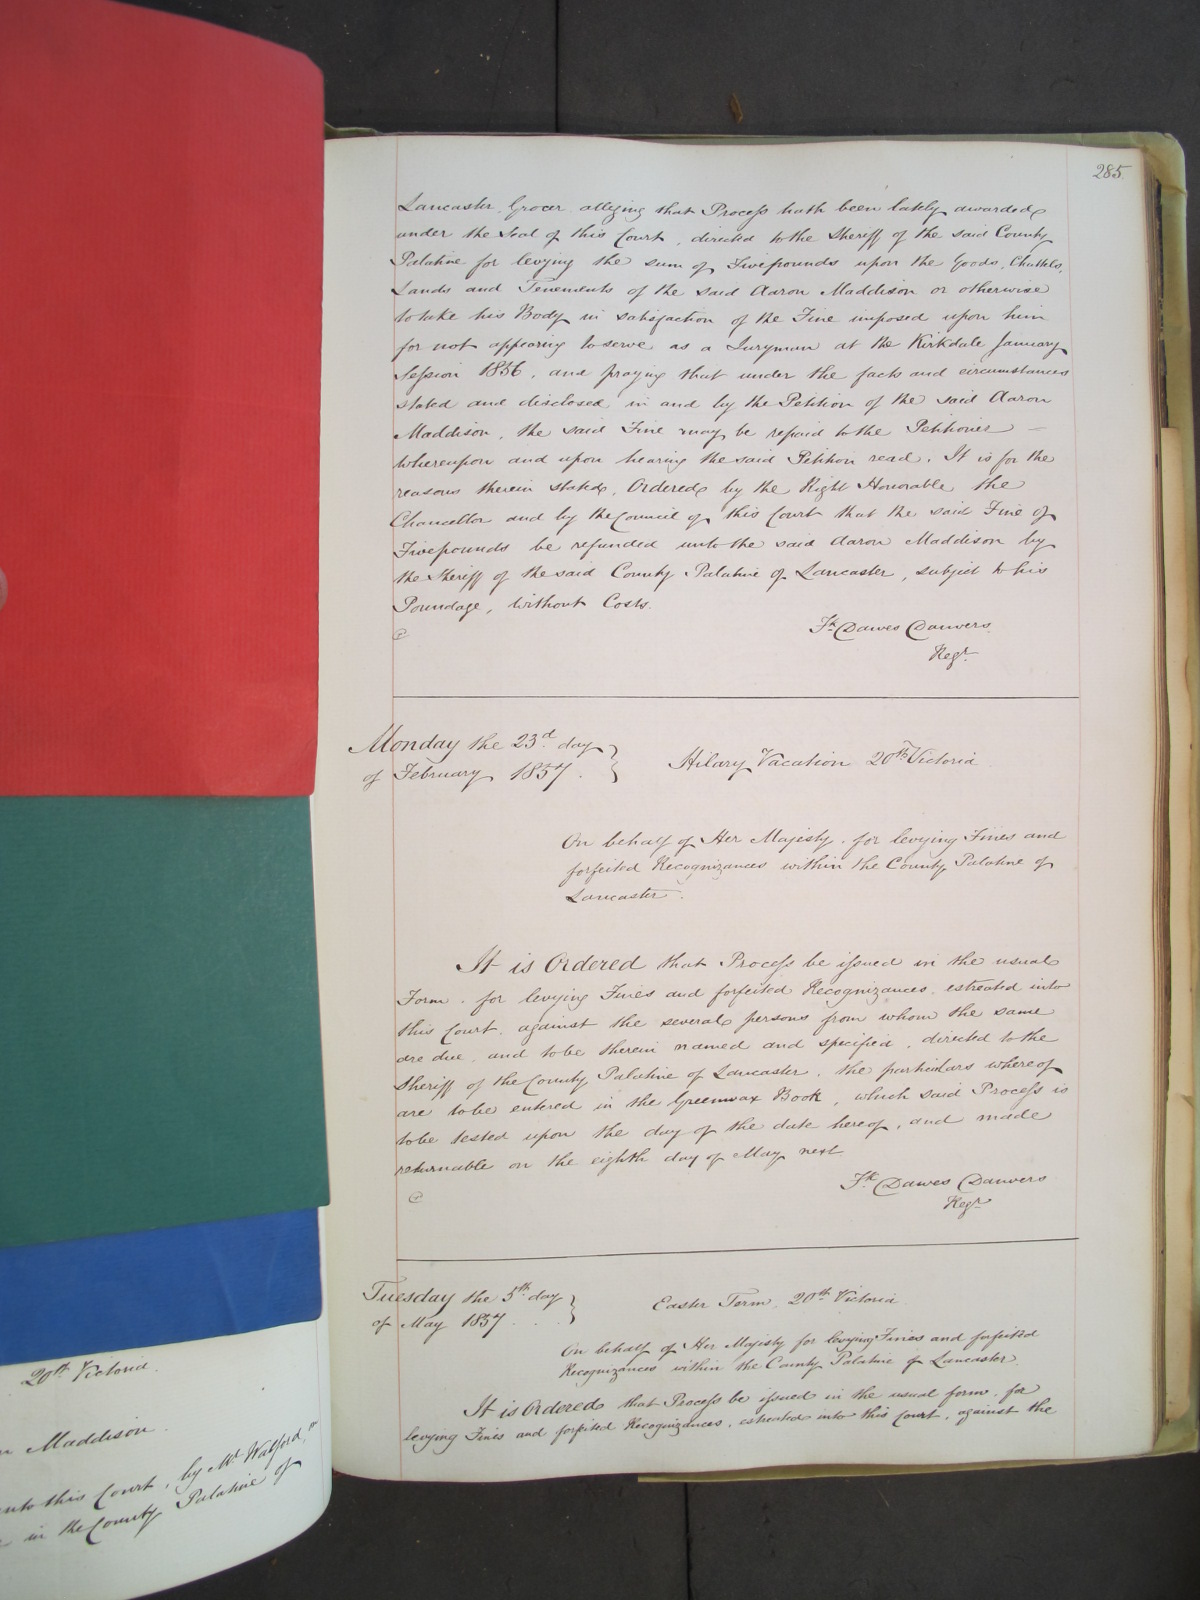 285
Lancaster Grocer alleging that Process hath been lately awarded
under the Seal of this Court, directed to the Sheriff of the said County
Palatine for levying the sum of Five pounds upon the Goods, Chattels,
Lands and Tenements of the said Aaron Maddison or otherwise
to take his Body in satisfaction of the Fine imposed upon him
for not appearing to serve as a Juryman at the Kirkdale January
Session 1856, and praying that under the facts and circumstances
stated and disclosed in and by the Petition of the said Aaron
Maddison, the said Fine may be repaid to the Petitioner —
Whereupon and upon hearing the said Petition read. It is for the
reasons therein stated, Ordered by the Right Honorable the
Chancellor and by the Council of this Court that the said Fine of
Five pounds be refunded unto the said Aaron Maddison by
the Sheriff of the said County Palatine of Lancaster, subject to his
Poundage, without Costs.
Fk Dawes Danvers
Regr
Monday the 23rd day
of February 1857.
Hilary Vacation 20th Victoria
On behalf of Her Majesty. for levying Fines and
forfeited Recognizances within the County Palatine of
Lancaster.
It is Ordered that Process be issued in the usual
Form. for levying Fines and forfeited Recognizances estreated into
this Court, against the several persons from whom the same
are due, and to be therein named and specified, directed to the
Sheriff of the County Palatine of Lancaster, the particulars whereof
are to be entered in the Greenwax Book, which said Process is
to be tested upon the day of the date hereof, and made
returnable on the eighth day of May next
Fk Dawes Danvers
Regr
Tuesday the 5th day
of May 1857. . .
Easter Term, 20th Victoria
On behalf of Her Majesty for levying Fines and forfeited
Recognizances within the County Palatine of Lancaster.
It is Ordered that Process be issued in the usual form, for
levying Fines and forfeited Recognizances, estreated into this Court, against the
20th Victoria.
Maddison.
unto this Court, by Mr Walford,
in the County Palatine of